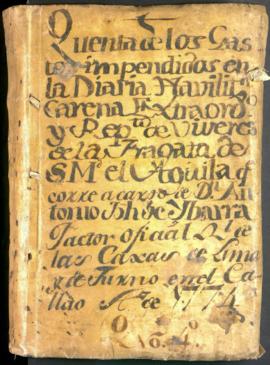 Quenta de los Gas
tos impendidos en
la Diaria Havilit.on
Carena Extraord.
y Rep.to de Viveres
de la Fragata de
S M. el Aguila q
corre a cargo de Dn. An
tonio Jph de Ybarra
Factor Oficial Rl. de
las Caxas de Lima
y de Turno en el Ca
llao A. de 1774
No. 4.